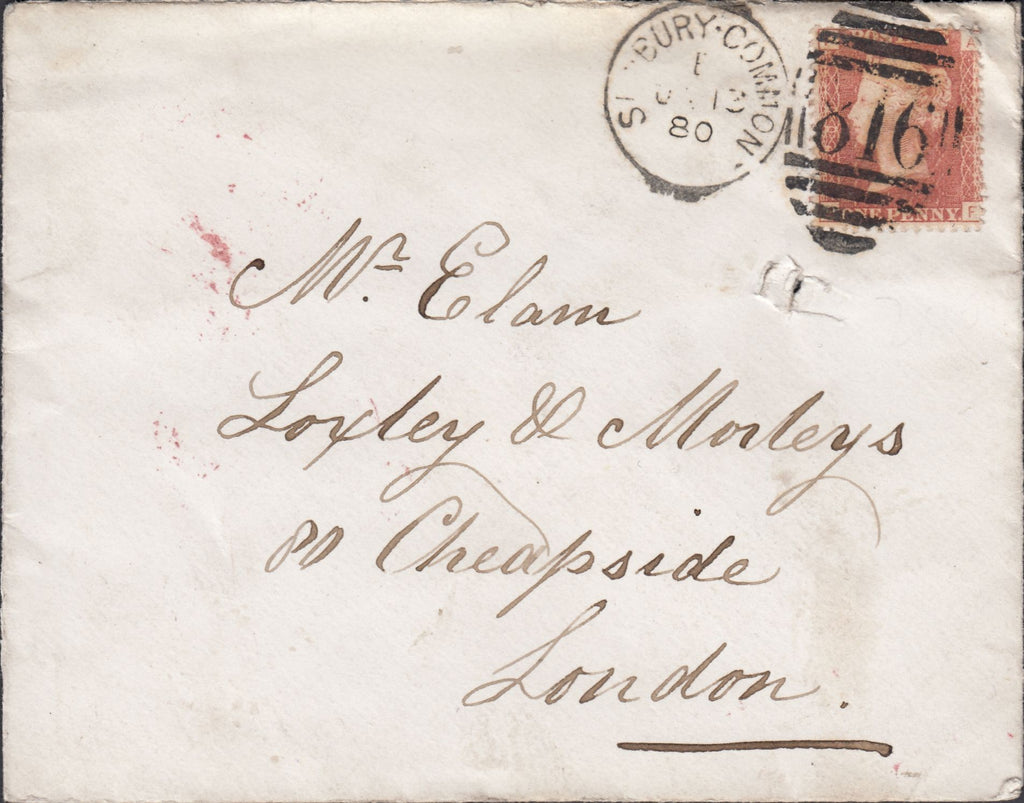 BURY·COMMON
E
13
80
A
816
ONE PENNY F
Mr. Elam
Loxley & Morleys
80 Cheapside
London.